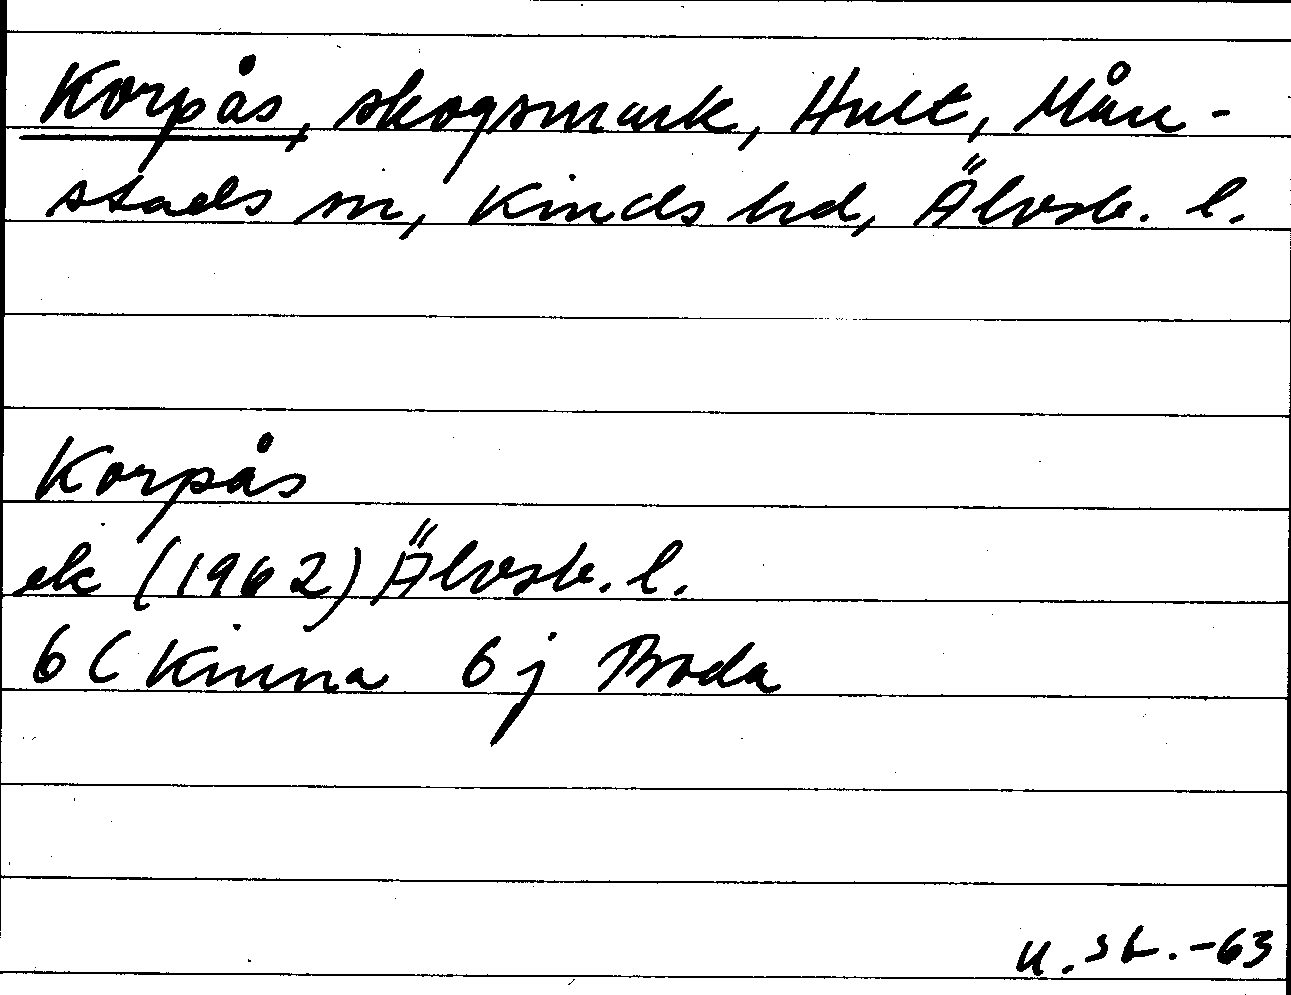 Korpås, skogsmark, Hult, Mån-
stads sn, Kinds hd, Älvsb. l.
Korpås
ek (1962) Älvsb. l.
6C Kinna 6j Boda
u. st. -63